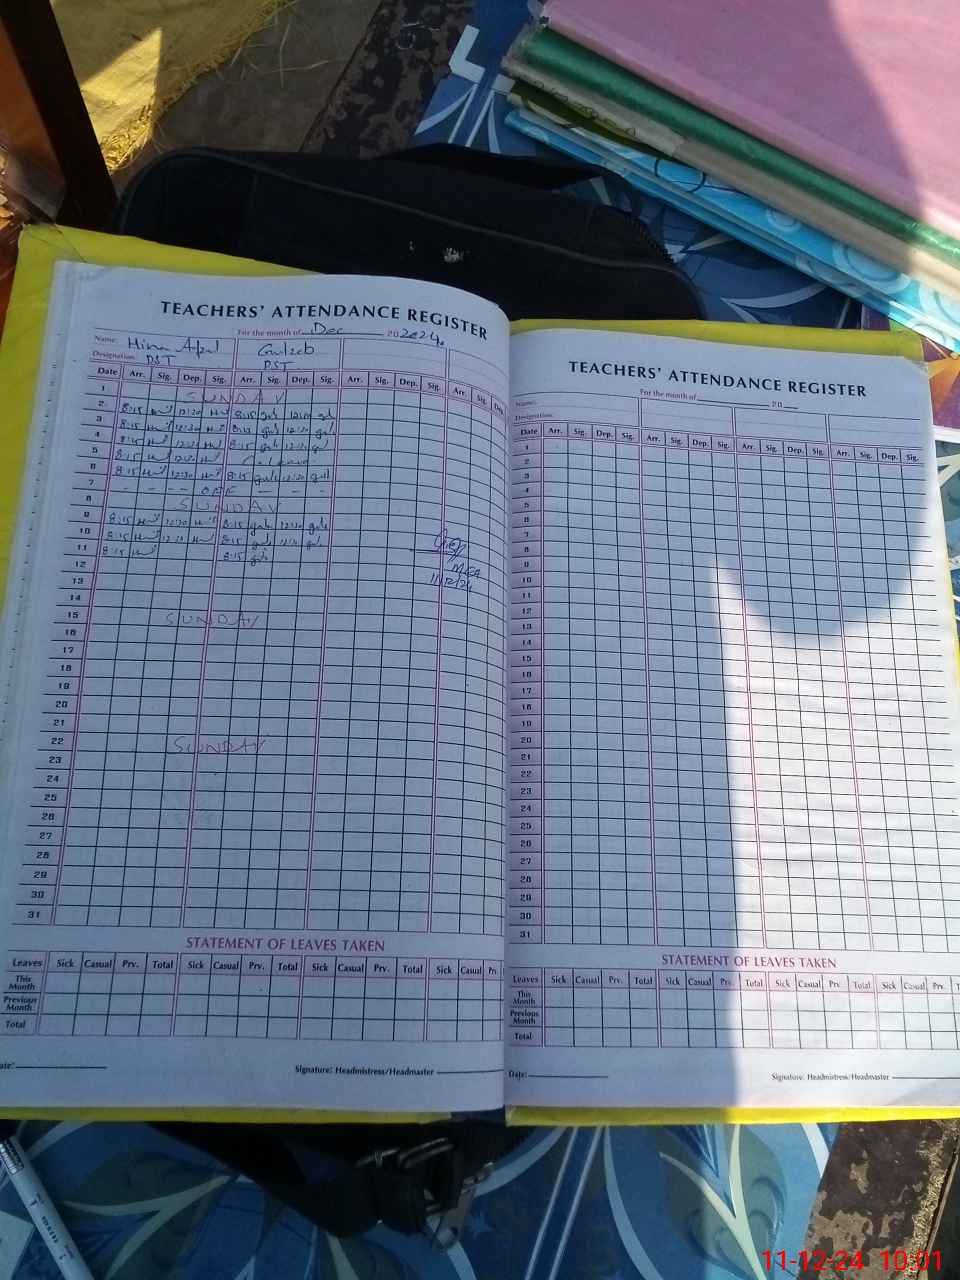 TEACHERS' ATTENDANCE REGISTER
For the month of Dec 202024.
Name: Hina Gulzeb
Designation: PST PST
Date Arr. Sig. Dep. Sig. Arr. Sig. Dep. Sig. Arr. Sig. Dep. Sig. Arr. Sig. Dep
1 SUNDAY
2 8:15 12:20 8:15 gul 12:20 gul
3 8:15 12:20 8:15 gul 12:20 gul
4 8:15 12:20 8:15 gul 12:20 gul
5 8:15 12:20 C. leave
6 8:15 12:20 8:15 gul 12:20 gul
7 - - - - OFF - - -
8 SUNDAY
9 8:15 12:20 8:15 gul 12:20 gul
10 8:15 12:20 8:15 gul 12:20 gul
11 8:15 8:15 gul
12 MEA
13 11/12/24
14
15 SUNDAY
16
17
18
19
20
21
22 SUNDAY
23
24
25
26
27
28
29
30
31
STATEMENT OF LEAVES TAKEN
Leaves Sick Casual Prv. Total Sick Casual Prv. Total Sick Casual Prv. Total Sick Casual Prv.
This Month
Previous Month
Total
ate: Signature: Headmistress/Headmaster
TEACHERS' ATTENDANCE REGISTER
For the month of 20
Name:
Designation:
Date Arr. Sig. Dep. Sig. Arr. Sig. Dep. Sig. Arr. Sig. Dep. Sig. Arr. Sig. Dep. Sig.
1
2
3
4
5
6
7
8
9
10
11
12
13
14
15
16
17
18
19
20
21
22
23
24
25
26
27
28
29
30
31
STATEMENT OF LEAVES TAKEN
Leaves Sick Casual Prv. Total Sick Casual Prv. Total Sick Casual Prv. Total Sick Casual Prv. T
This Month
Previous Month
Total
Date: Signature: Headmistress/Headmaster
11-12-24 10:01